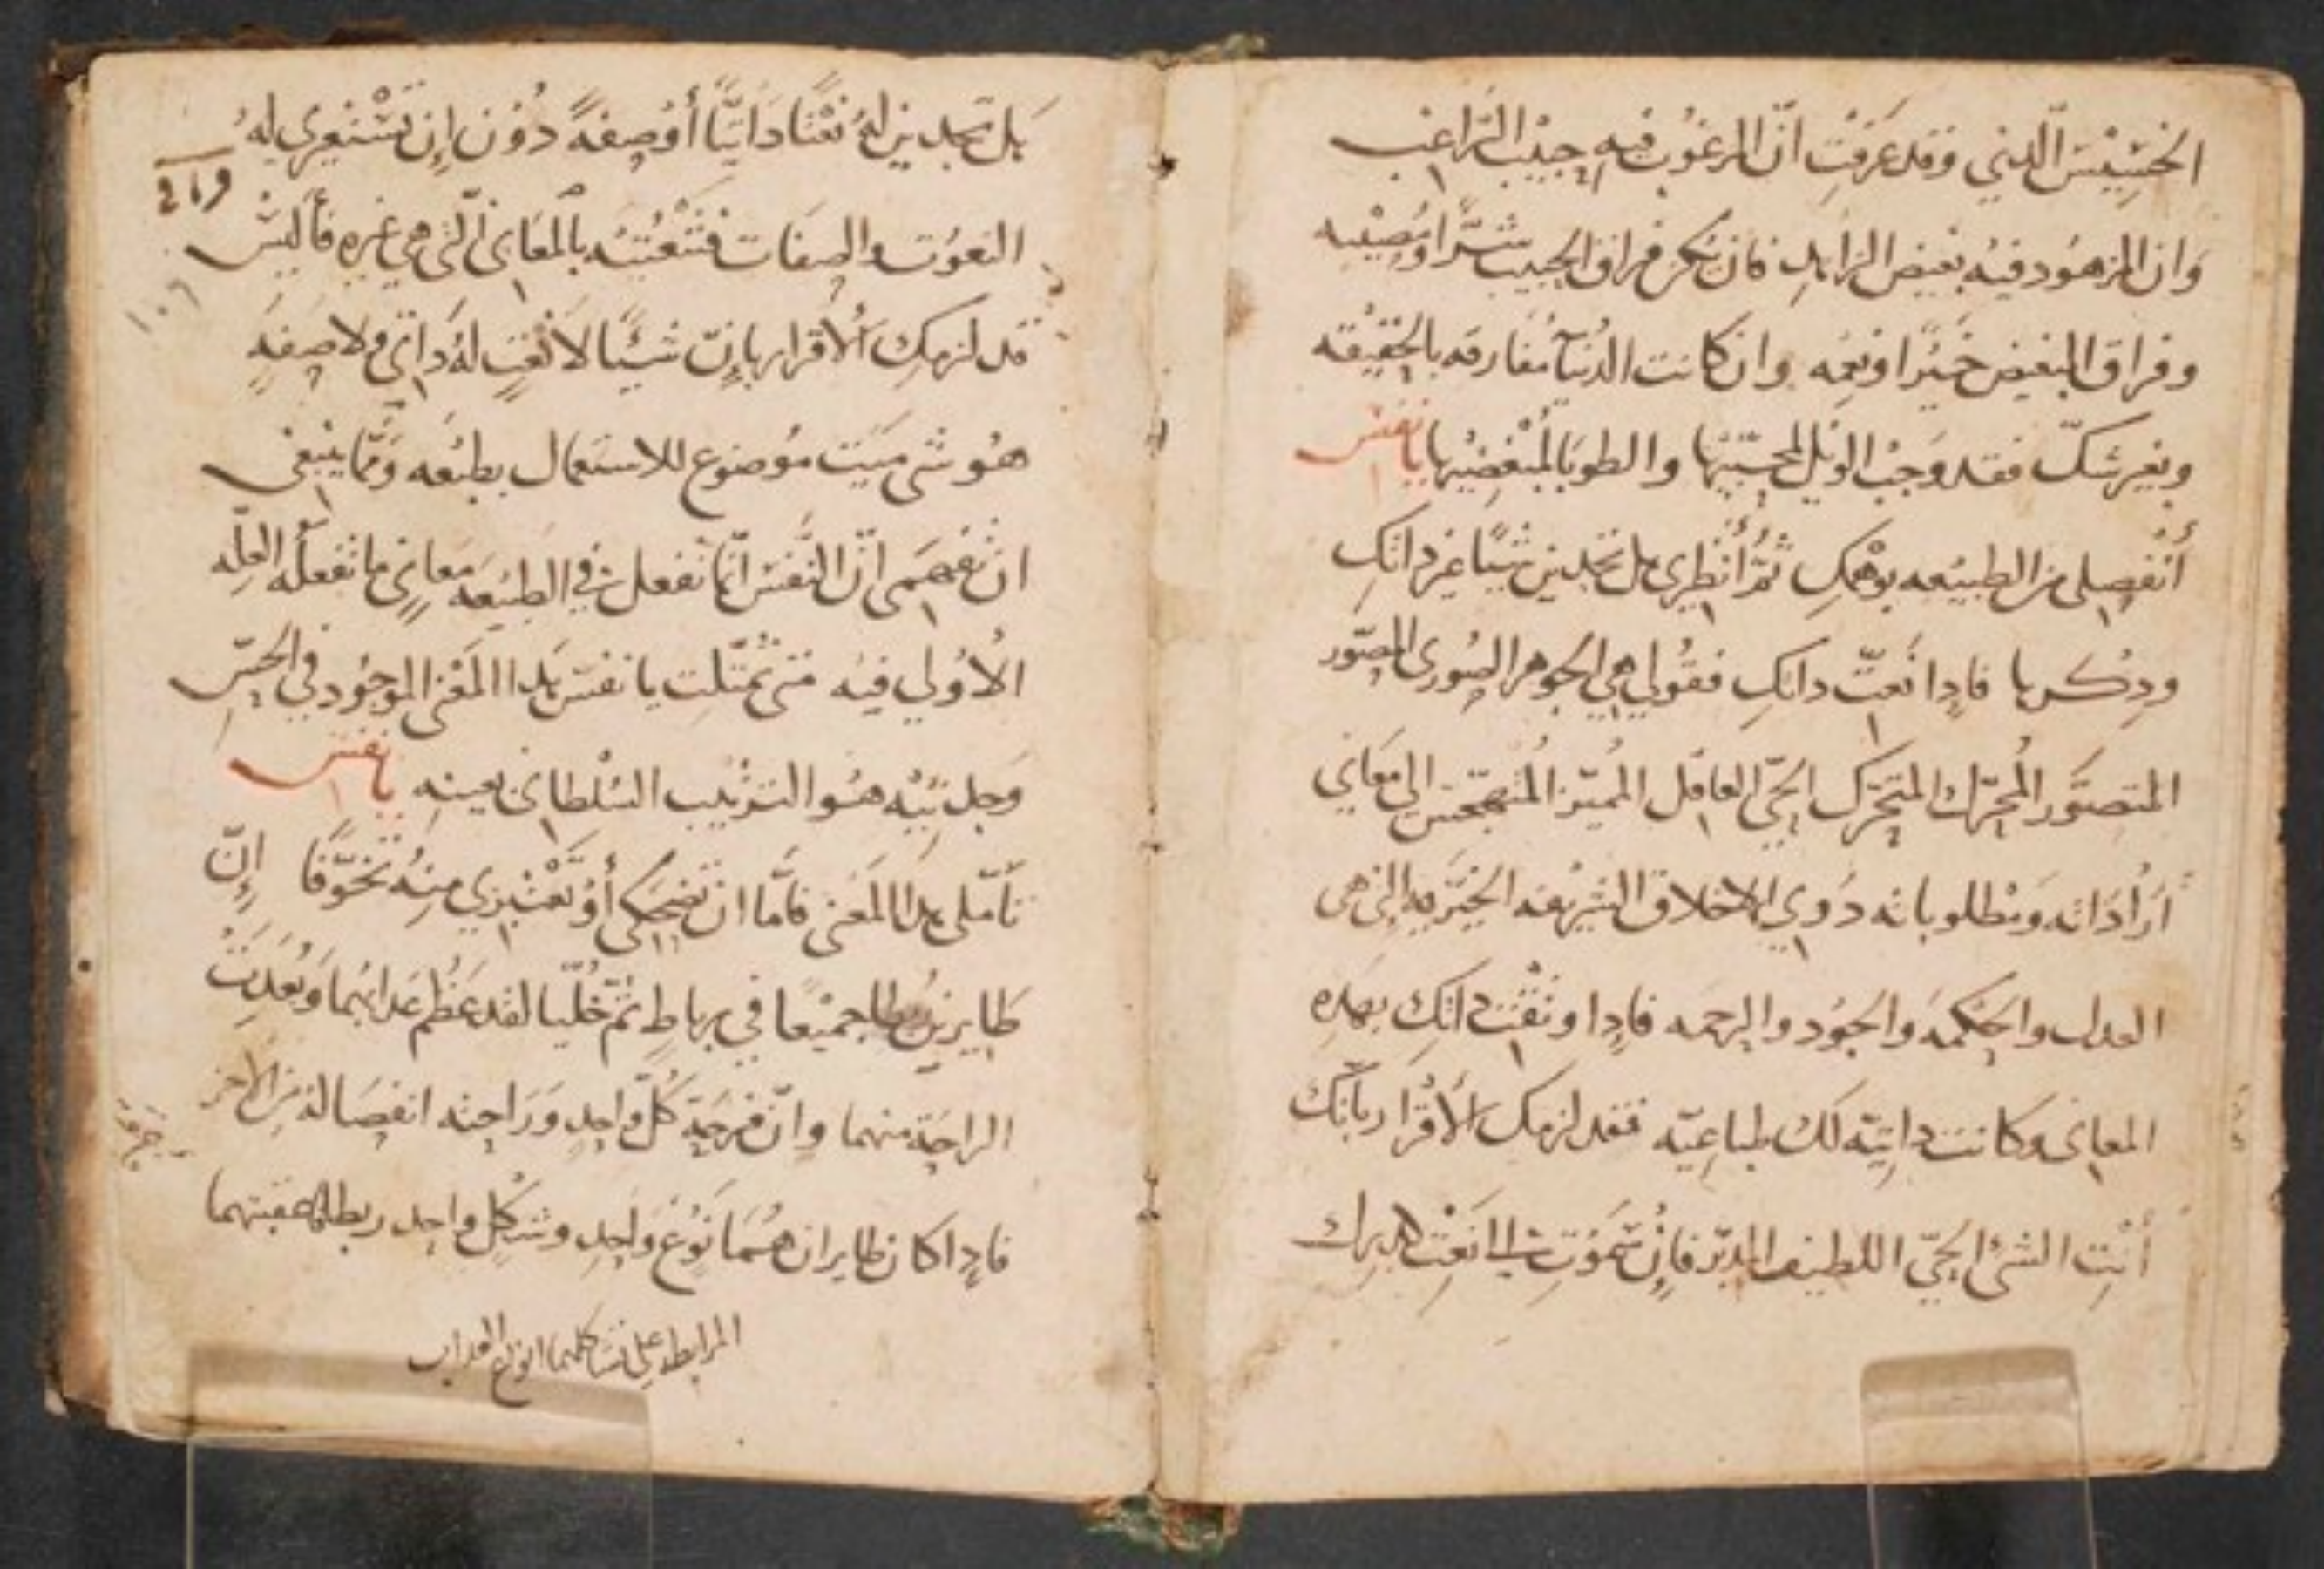 الخسيس الدني وقد عرفت انّ المرغوب فيه حبيب الراغب
وان المزهود فيه بغيض الزاهد فان يكن فراق الحبيب شرًّا ومصيبه
وفراق البغيض خيرًا ونعمه وان كانت الدنيا مفارقه بالحقيقه
وبغير شكّ فقد وجب الويل لمحبّيها والطوبا لمبغضيها يا نفس
أنفصلي من الطبيعه بوهمك ثمّ أنظري هل تجدين شيئًا غير داتك
ودكرها فادا نعتّ داتك فقولي هي الجوهر الصوري المصوّر
المتصوّر المحرّك المتحرّك الحيّ العاقل المميّز الي معاني
أراداته ومطلوباته دوي الاخلاق الشريفه الخيّريه التي هي
العدل والحكمه والجود والرحمه فادا ونعتّ داتك بهده
المعاني وكانت داتيّه لك طباعيّه فقد لزمك الأقرار بانّك
أنت الشي الحيّ اللطيف المدبّر فان
بل تجدين له نعتًا داتيًّا أو صفهً دون إن تستعيري له
النعوت والصفات فتنعتيه بالمعاني الّتي هي غيره فأليس
قد لزمك ألأقرار بإنّ شيئًا لا نعتٍ لهُ داتي ولا صفهٍ
هو شي ميّت موضوع للاستعمال بطبعه وممّا ينبغي
ان تفهمي انّ النّفس انّما تفعل في الطبيعه معاني ما تفعله العلّه
الأولي فيه متي تمثّلت يا نفس هدا المعني الموجود في الحسّ
هو الترتيب السلطاني بعينه يا نفس
تأمّلي هدا المعني فامّا ان تضحكي أو تعتبري منه تخوّفًا إنّ
طايرين ربطا جميعًا في رباطٍ ثمّ خلّيا لقد عظم عدابهما وبعدت
الراحة منهما وانّ فرحة كلّ واحد وراحته انفصاله من الأخر
فادا كان طايران هما نوع واحد وشكل واحد
المرابط علي تشاكلهما انواع العداب